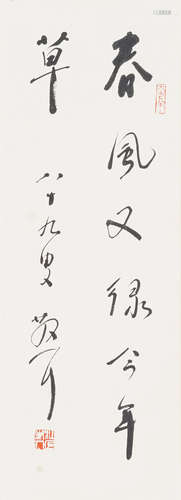 春風又綠今年
草 八十九叟